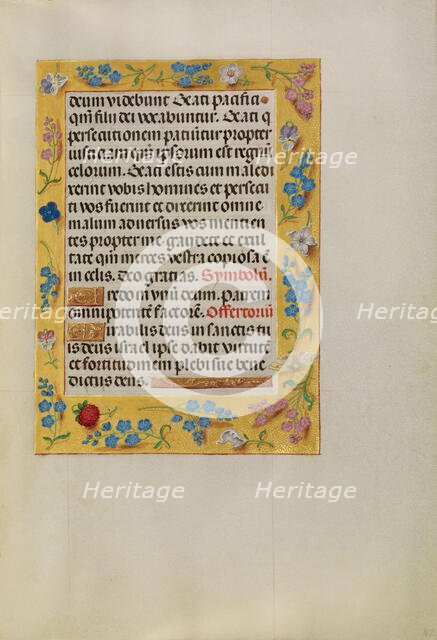 deum videbunt. Beati pacifici
qm̄ filii dei vocabuntur. Beati q̄
persecutionem patiūtur propter
iusticiam qm̄ ipsorum est regnū
celorum. Beati estis cum maledi
xerint vobis homines et persecu
ti vos fuerint et dixerint omne
malum adversus vos mentien
tes propter me. gaudete et exul
tate qm̄ merces vestra copiosa ē
in celis. deo gratias. Symbolū.
Credo in vnū deum. patrem
omnipotentē factorē. Offertoriū
Mirabilis deus in sanctis su
is deus israel ipse dabit virtutē
et fortitudinem plebi sue bene
dictus deus.
Heritage Heritage
Heritage Heritage